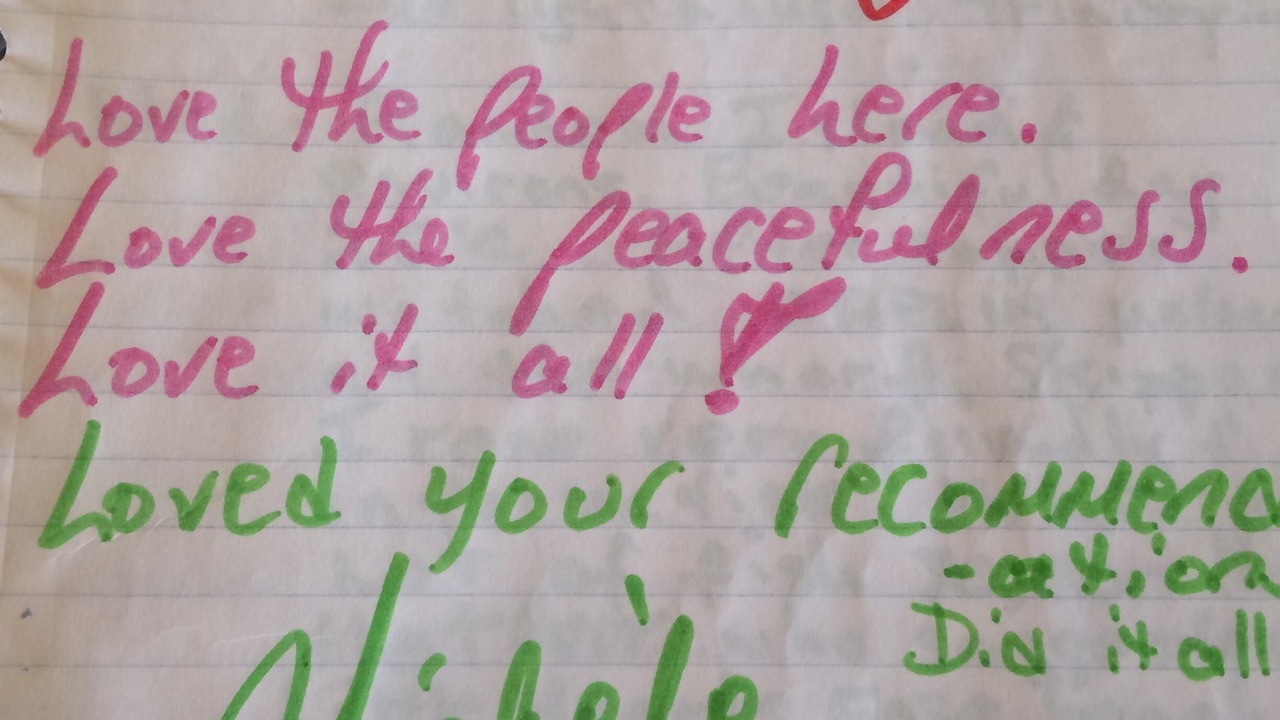 Love the people here.
Love the peacefulness.
Love it all!
Loved your recommend
-ation
Did it all